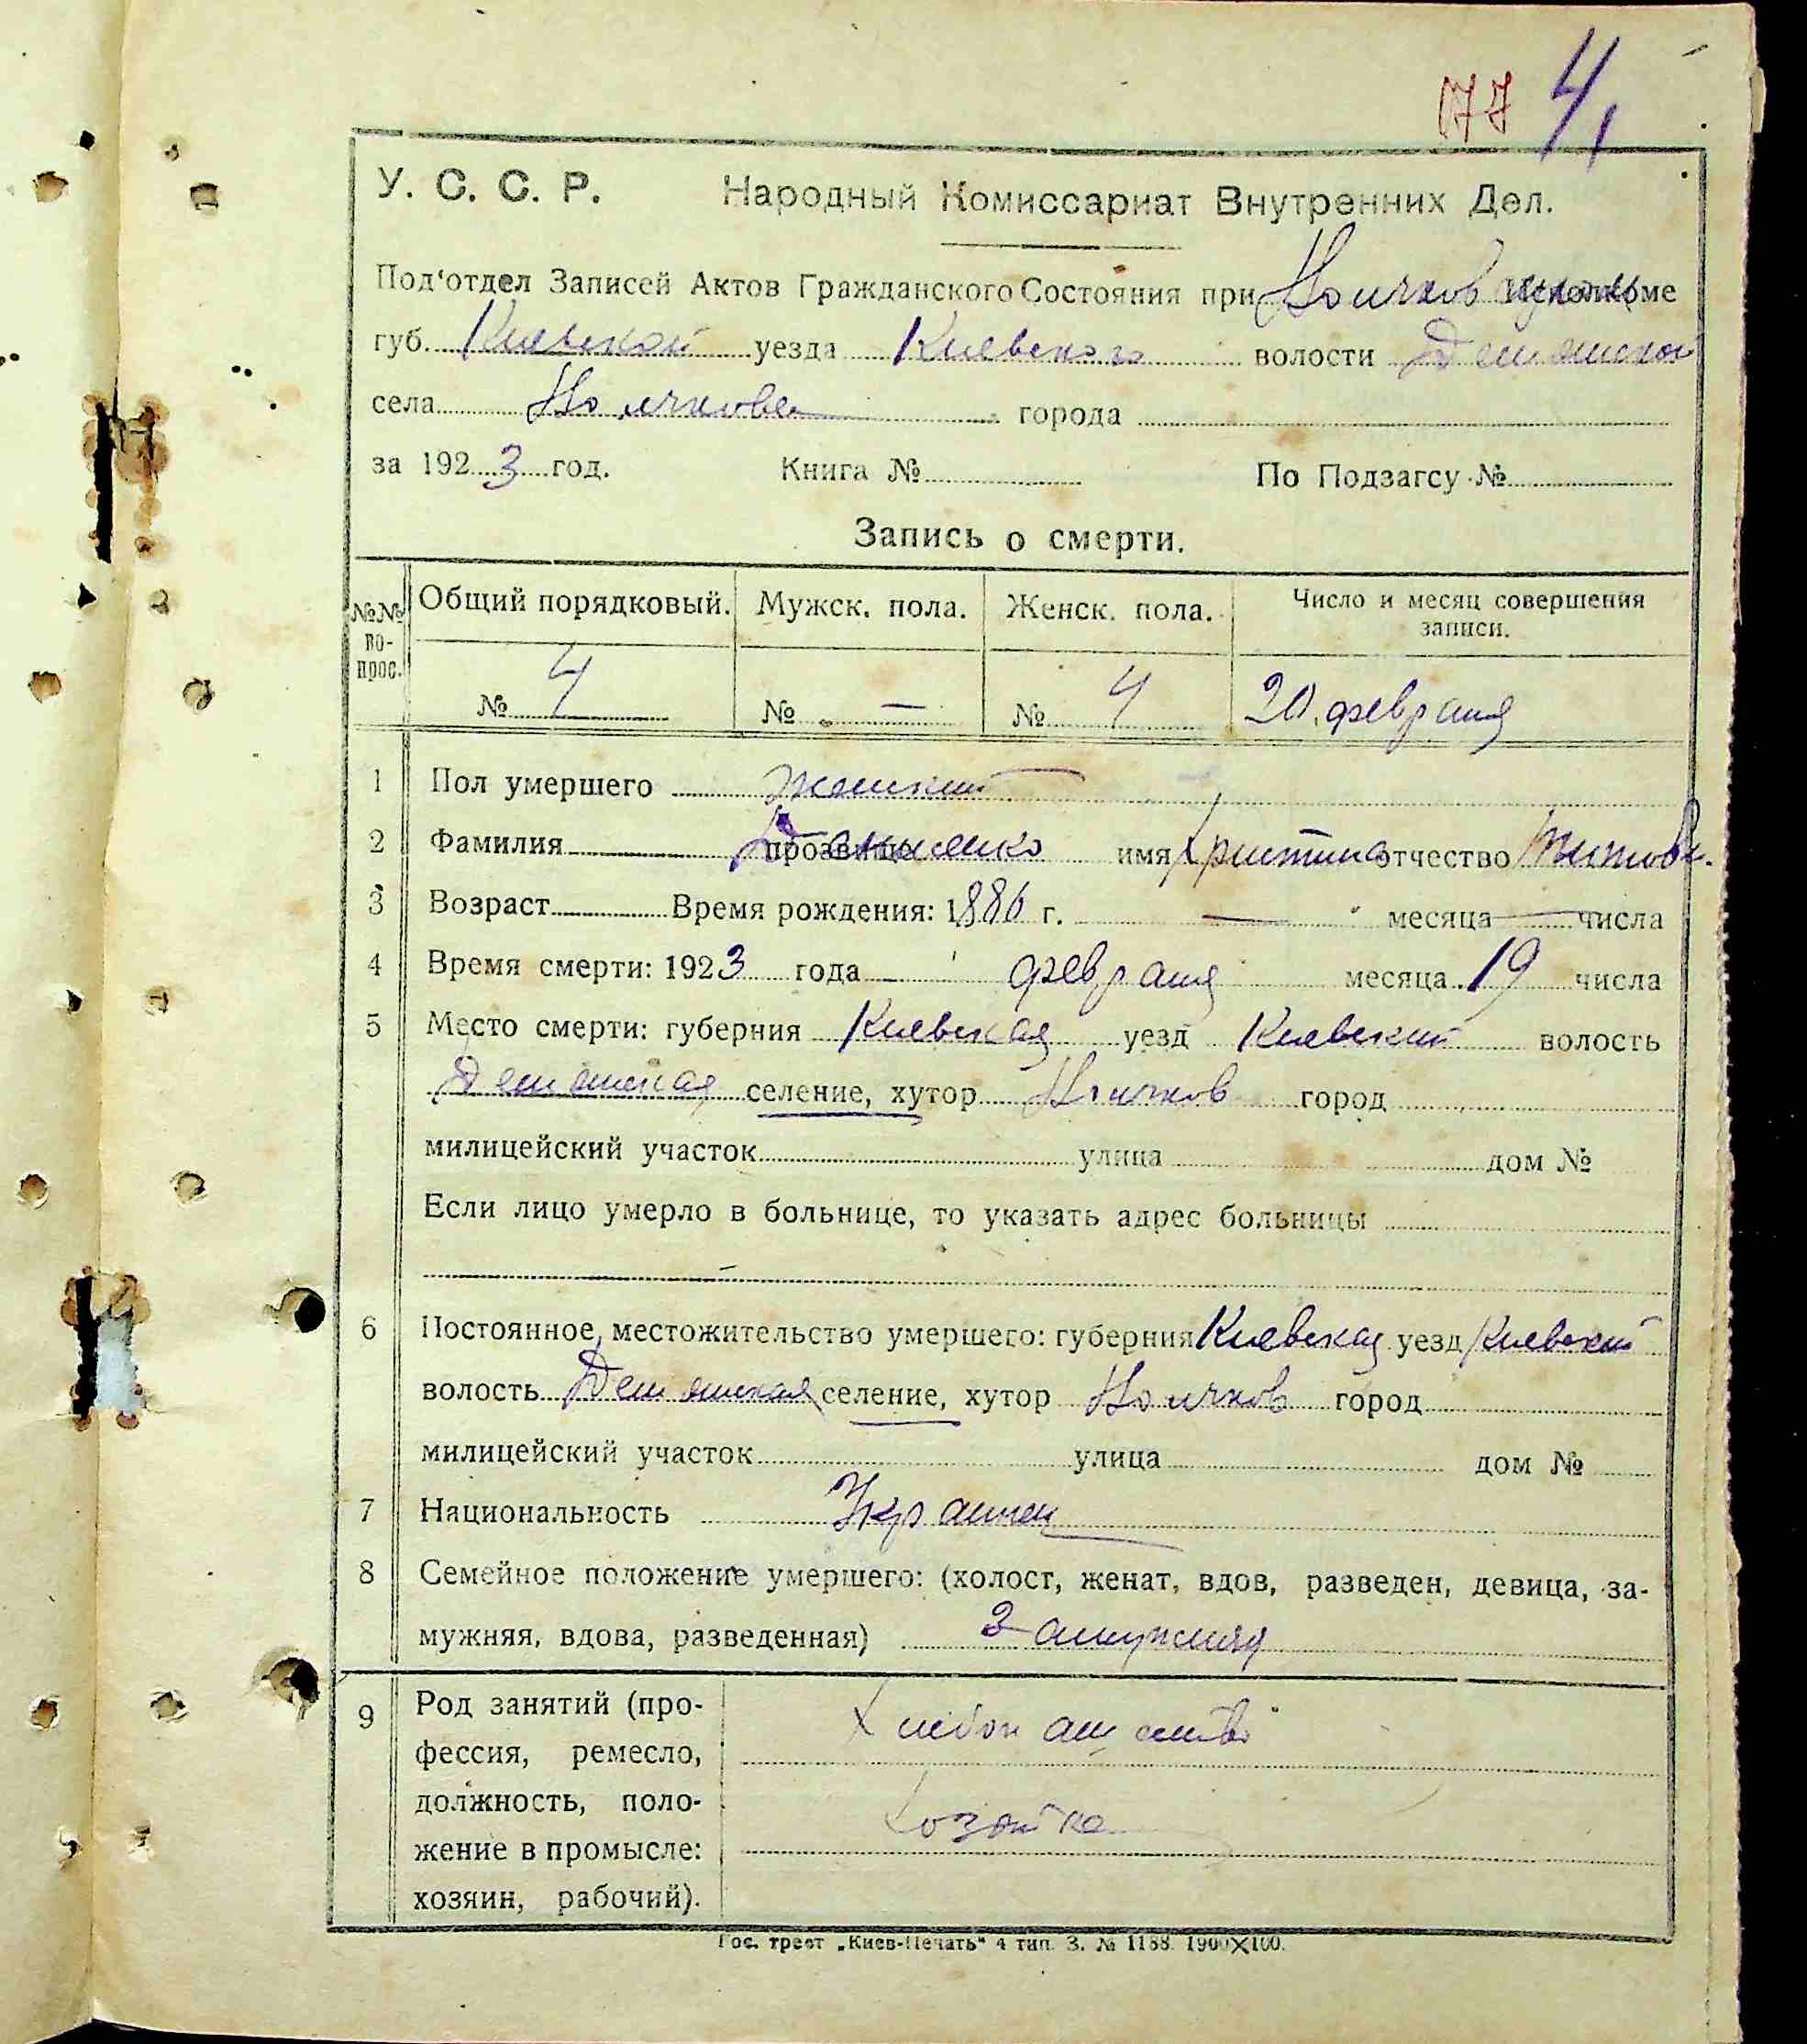 177 4
У. С. С. Р. Народный Комиссариат Внутренних Дел.
Под'отдел Записей Актов Гражданского Состояния при Исполкоме
губ. Киевской уезда Киевского волости
села города
за 1923 год. Книга № По Подзагсу №
Запись о смерти.
№№ вопрос. Общий порядковый. Мужск. пола. Женск. пола. Число и месяц совершения записи.
№ 4 № — № 4 20 февраля
1 Пол умершего женский
2 Фамилия прозвище имя Христина отчество Титовн.
3 Возраст Время рождения: 1886 г. — месяца — числа
4 Время смерти: 1923 года февраля месяца 19 числа
5 Место смерти: губерния Киевская уезд Киевский волость
селение, хутор город
милицейский участок улица дом №
Если лицо умерло в больнице, то указать адрес больницы
6 Постоянное местожительство умершего: губерния Киевская уезд Киевский
волость селение, хутор город
милицейский участок улица дом №
7 Национальность Украинец
8 Семейное положение умершего: (холост, женат, вдов, разведен, девица, за-
мужняя, вдова, разведенная) Замужняя
9 Род занятий (про-
фессия, ремесло,
должность, поло-
жение в промысле:
хозяин, рабочий).
Хлебопашество
Хозяйка
Гос. трест „Киев-Печать" 4 тип. З. № 1188. 1900×100.